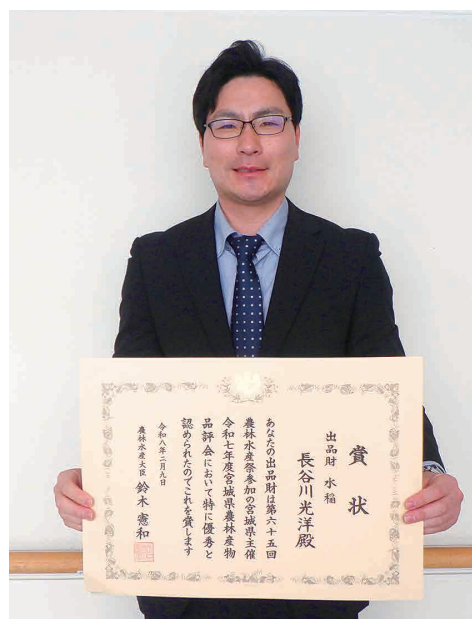 賞状
出品財 水稲
長谷川光洋殿
あなたの出品財は第六十五回
農林水産祭参加の宮城県主催
令和七年度宮城県農林産物
品評会において特に優秀と
認められたのでこれを賞します
令和八年二月九日
農林水産大臣 鈴木憲和